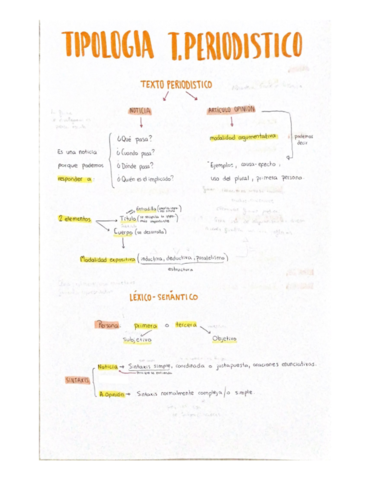 TIPOLOGIA T.PERIODISTICO
TEXTO PERIODISTICO
NOTICIA
ARTÍCULO OPINIÓN
Es una noticia
porque podemos
responder a:
¿Qué pasa?
¿Cuando pasa?
¿Dónde pasa?
¿Quién es el implicado?
modalidad argumentativa
podemos
decir
Ejemplos, causa-efecto,
uso del plural, primera persona
2 elementos
Entradilla
Título
Cuerpo (se desarrolla)
Modalidad expositiva (inductiva, deductiva, paralelismo)
estructura
LÉXICO-SEMÁNTICO
Persona: primera o tercera
Subjetivo
Objetivo
SINTAXIS
Noticia → Sintaxis simple, coordinada o yuxtapuesta, oraciones enunciativas.
A.Opinión → Sintaxis normalmente compleja/o simple.